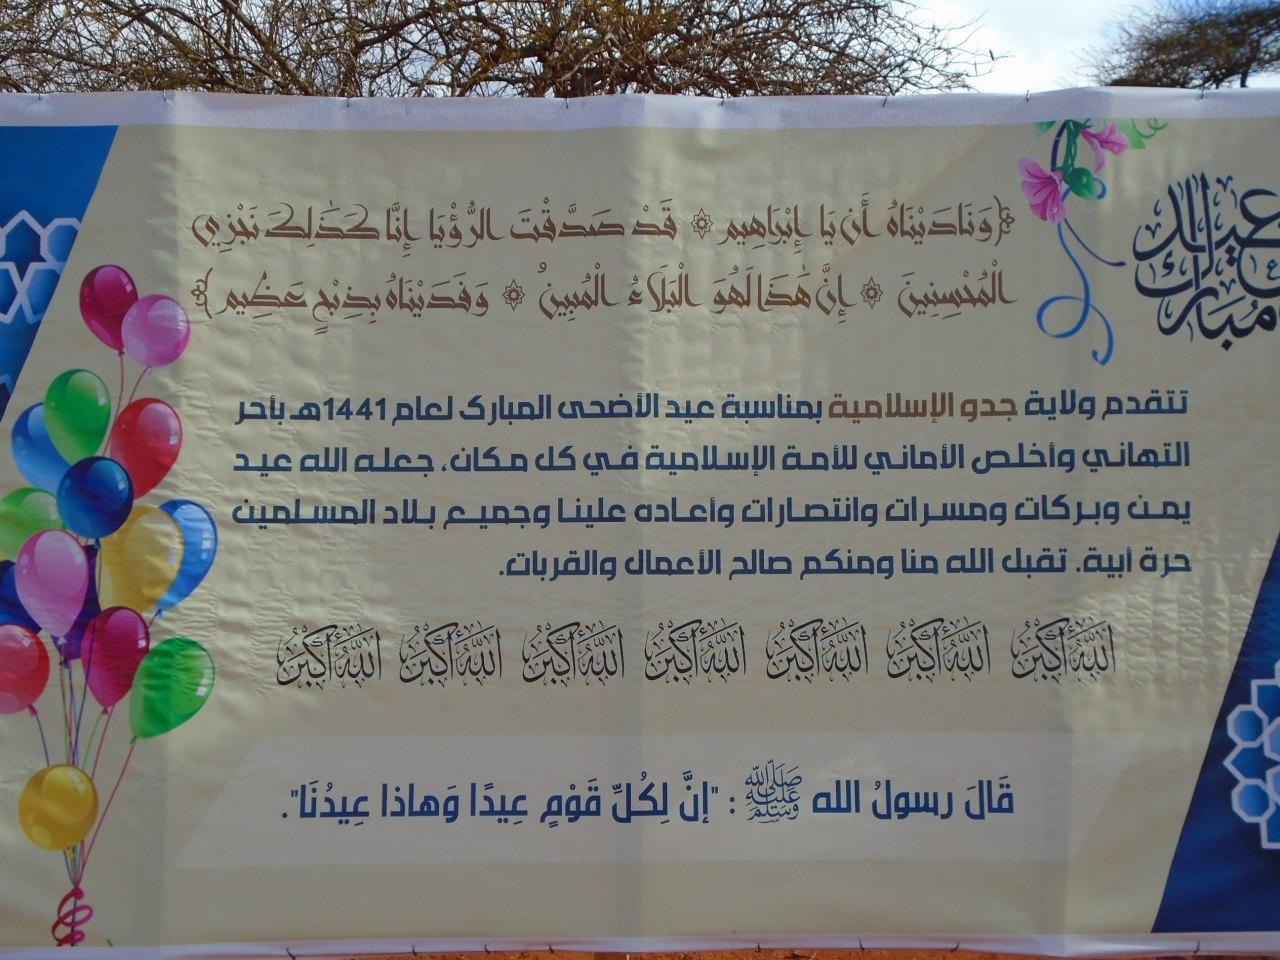 عيد
مبارك
﴿وَنَادَيْنَاهُ أَن يَا إِبْرَاهِيم ۞ قَدْ صَدَّقْتَ الرُّؤْيَا إِنَّا كَذَٰلِكَ نَجْزِي
الْمُحْسِنِينَ ۞ إِنَّ هَٰذَا لَهُوَ الْبَلَاءُ الْمُبِينُ ۞ وَفَدَيْنَاهُ بِذِبْحٍ عَظِيم﴾
تتقدم ولاية جدو الإسلامية بمناسبة عيد الأضحى المبارك لعام 1441هـ بأحر
التهاني وأخلص الأماني للأمة الإسلامية في كل مكان، جعله الله عيد
يمن وبركات ومسرات وانتصارات وأعاده علينا وجميع بلاد المسلمين
حرة أبية. تقبل الله منا ومنكم صالح الأعمال والقربات.
الله أكبر الله أكبر الله أكبر الله أكبر الله أكبر الله أكبر الله أكبر
قَالَ رسولُ الله ﷺ : "إنَّ لِكُلِّ قَوْمٍ عِيدًا وَهاذا عِيدُنَا".